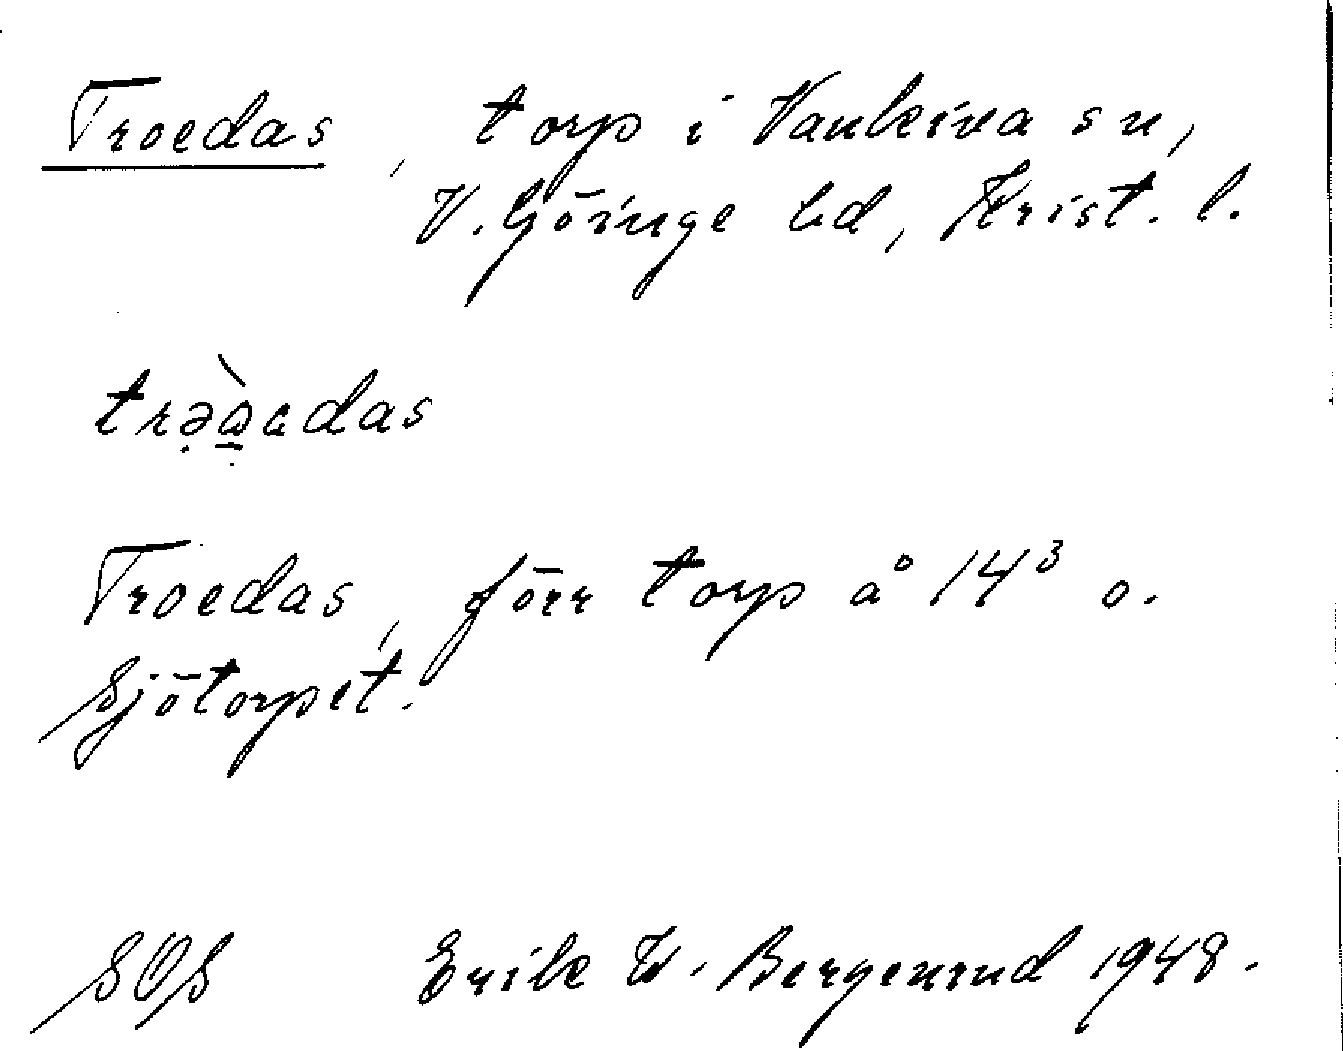 Troedas, torp i Vankiva sn,
V. Göinge hd, Krist. l.
trə̣̀a̱̣edas
Troedas, förr torp å 14³ o.
Sjötorpet.
SOS Erik W. Bergenrud 1948.